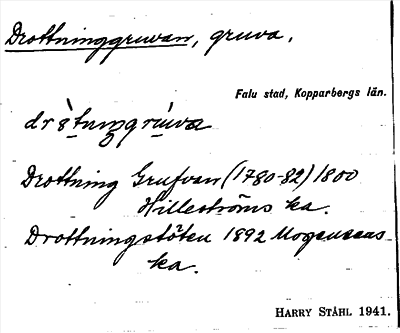 Drottninggruvan, gruva.
Falu stad, Kopparbergs län.
Drottning Grufvan (1780-82) 1800
Hilleströms ka.
Drottningstöten 1892 Mogensens
ka.
HARRY STÅHL 1941.